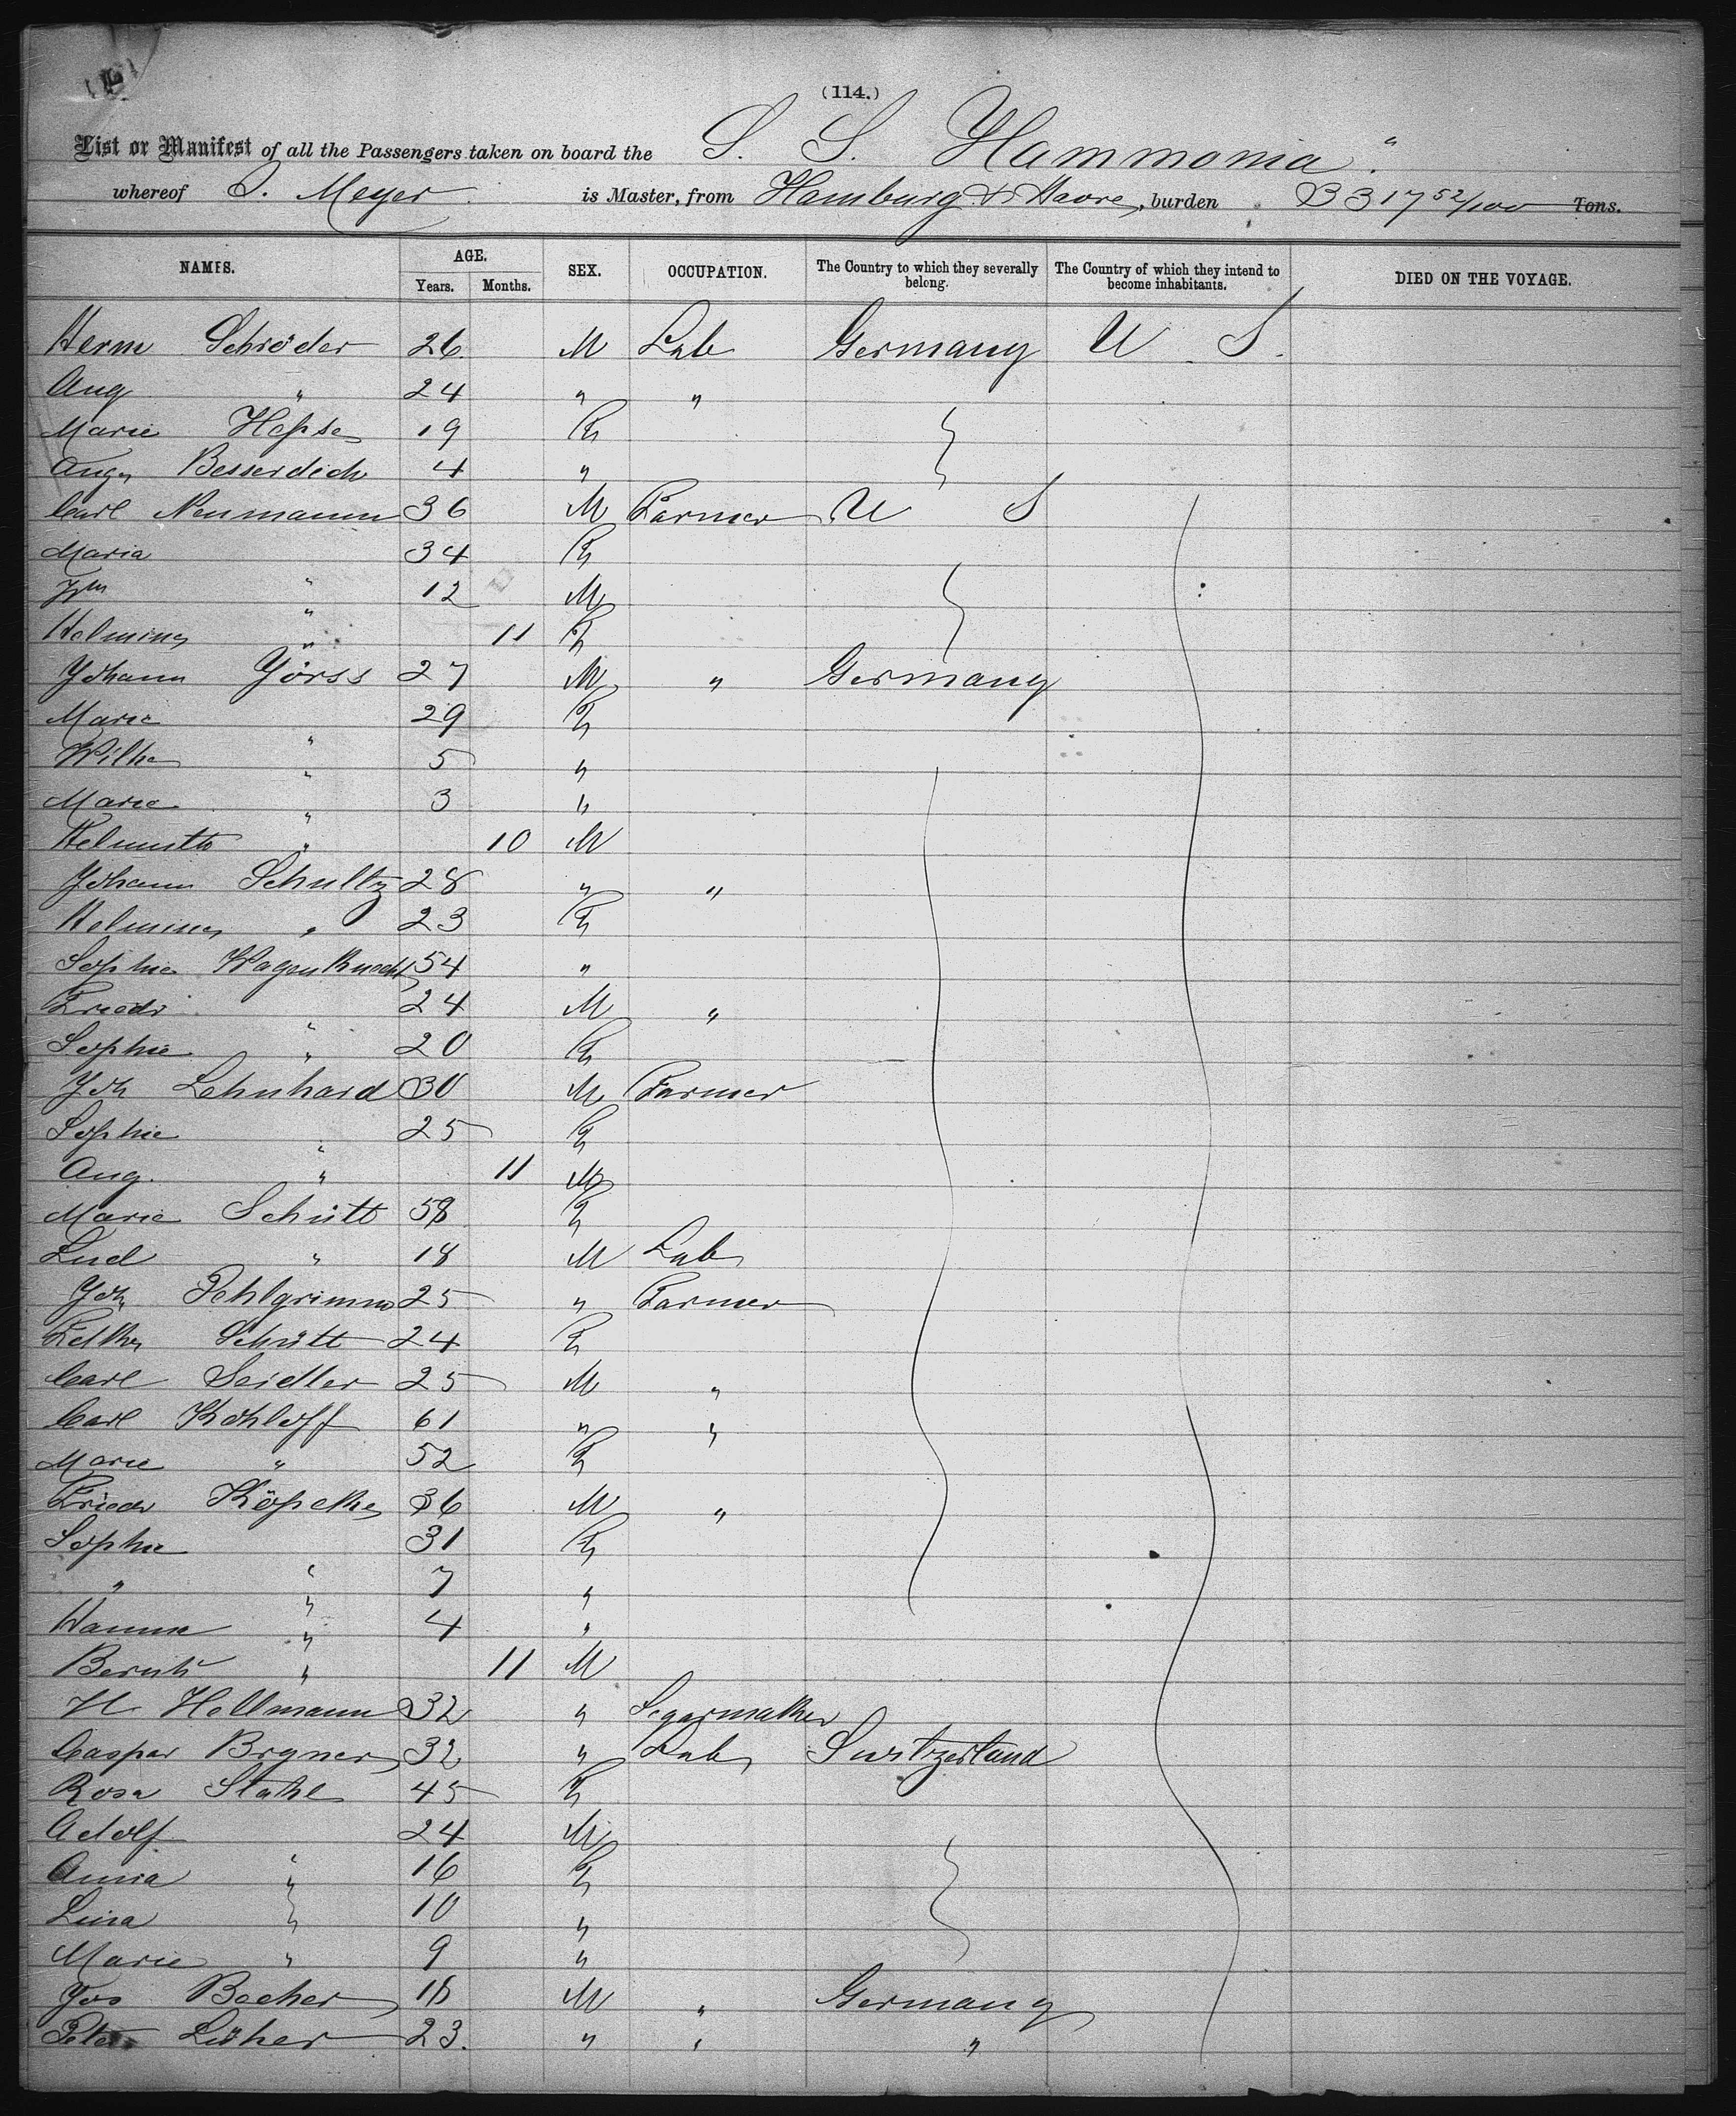 (114.)
List or Manifest of all the Passengers taken on board the S. S. Hammonia"
whereof Meyer is Master, from Hamburg & Havre, burden 3317 52/100 Tons.
NAMES. AGE. Years. Months. SEX. OCCUPATION. The Country to which they severally belong. The Country of which they intend to become inhabitants. DIED ON THE VOYAGE.
Herm Schröder 26 M Lab Germany U S.
Aug " 24 " "
Marie 19 F
Aug. Besserdich 4 "
Carl Neumann 36 M Farmer U S
Maria " 34 F
" 12 M
Helmine " 11 F
Johann Jörss 27 M " Germany
Marie " 29 F
Wilhe " 5 "
Marie " 3 "
Helmuth " 10 M
Johann Schultz 28 " "
Helmine " 23 F
Sophie Wagenknecht 54 "
Friedr " 24 M "
Sophie " 20 F
Joh Lehnhard 30 M Farmer
Sophie " 25 F
Aug. " 11 M
Marie Schütt 58 F
Lud " 18 M Lab
Joh Pehlgrimm 25 " Farmer
Schütt 24 F
Carl Seidler 25 M "
Carl Kohloff 61 " "
Marie " 52 F
Friedr Köpcke 36 M "
Sophie " 31 F
" " 7 "
Hanne " 4 "
" 11 M
H Hellmann 32 " Segarmaker
Caspar Bryner 32 " Lab Switzerland
Rosa Stahel 45 F
Adolf " 24 M
Anna " 16 F
Lina " 10 "
Marie " 9 "
Jos Becher 18 M " Germany
Peter Lüher 23. " " "